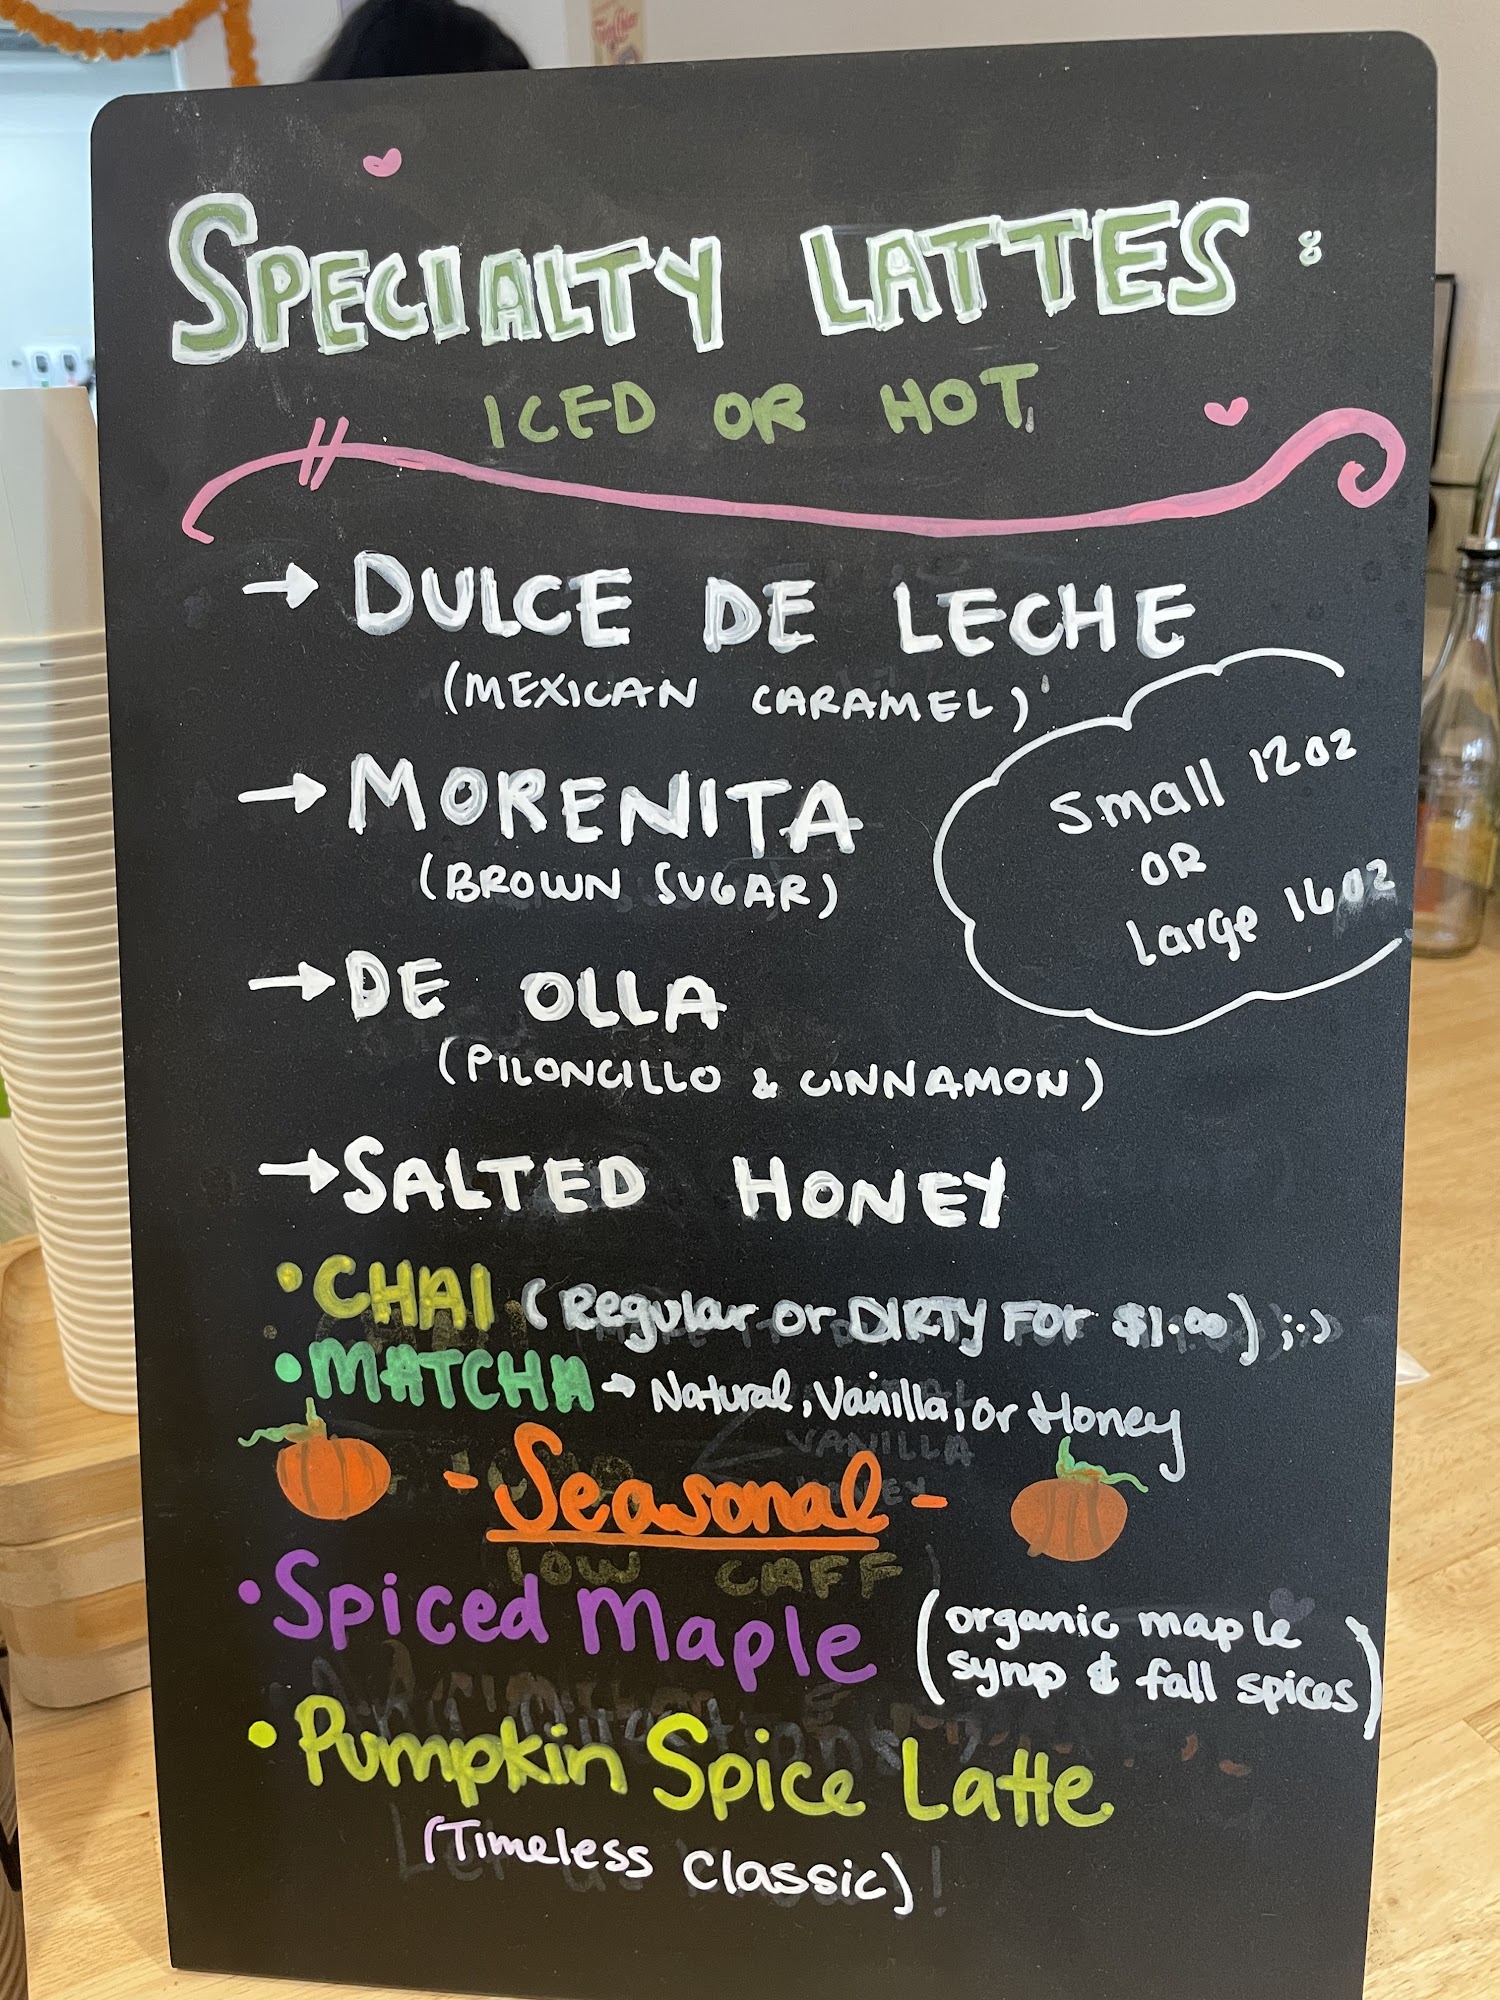 SPECIALTY LATTES:
ICED OR HOT
→ DULCE DE LECHE
(MEXICAN CARAMEL)
→ MORENITA
(BROWN SUGAR)
Small 12oz
OR
Large 16oz
→ DE OLLA
(PILONCILLO & CINNAMON)
→ SALTED HONEY
• CHAI (Regular or DIRTY FOR $1.00) ;:)
• MATCHA → Natural, Vanilla, or Honey
VANILLA
- Seasonal -
LOW CAFF
• Spiced Maple (organic maple
syrup & fall spices)
• Pumpkin Spice Latte
(Timeless Classic)